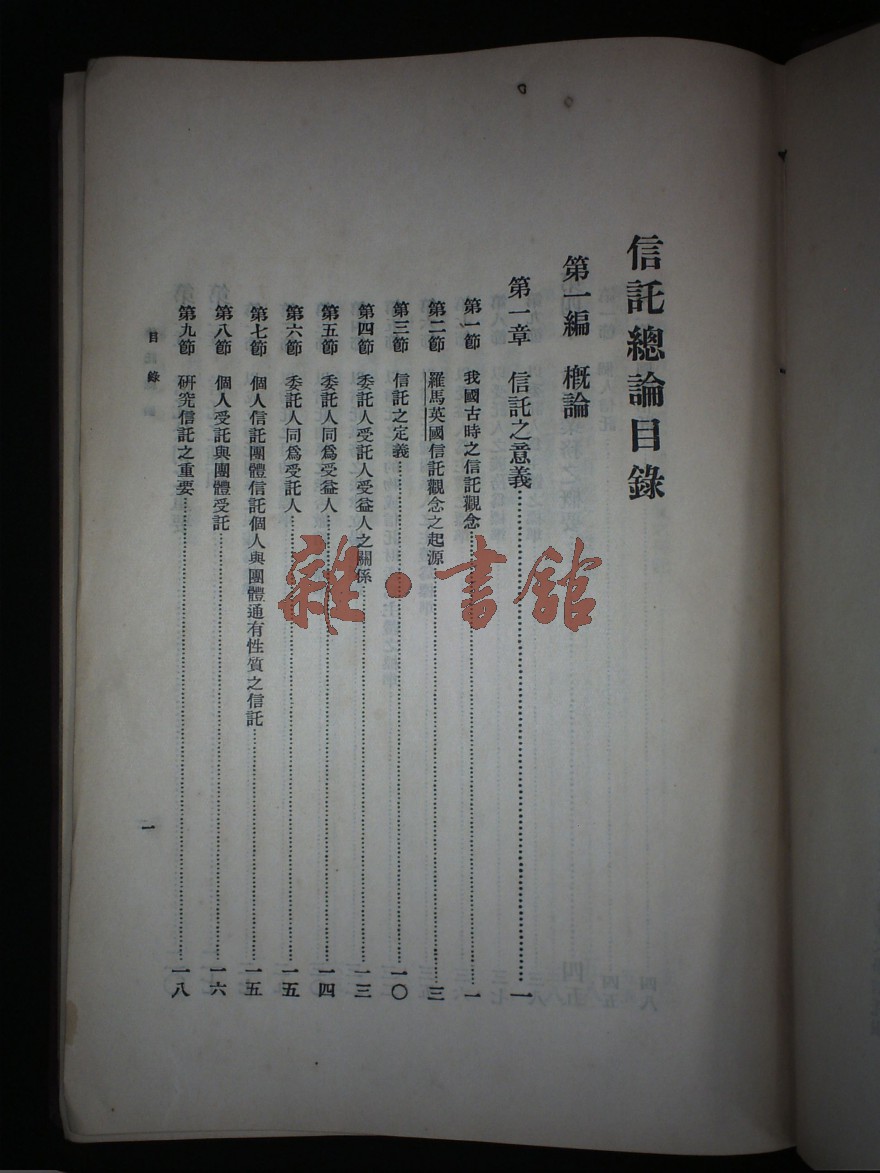 信託總論目錄
第一編 概論
第一章 信託之意義……一
第一節 我國古時之信託觀念……一
第二節 羅馬英國信託觀念之起源……三
第三節 信託之定義……一〇
第四節 委託人受託人受益人之關係……一三
第五節 委託人同爲受益人……一四
第六節 委託人同爲受託人……一五
第七節 個人信託團體信託個人與團體通有性質之信託……一五
第八節 個人受託與團體受託……一六
第九節 研究信託之重要……一八
目錄
一
雜·書館